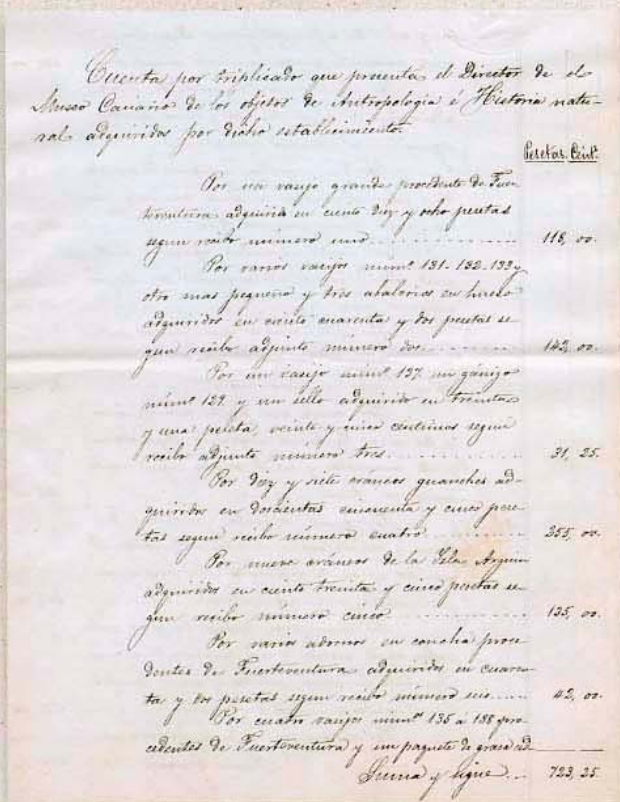 Cuenta por triplicado que presenta el Director de el
Museo Canario de los objetos de Antropología é Historia natu-
ral adquiridos por dicho establecimiento.
Pesetas. Cent.ˢ
Por un vasijo grande procedente de Fuer-
teventura adquirido en ciento diez y ocho pesetas
segun recibo número uno 118, 00.
Por varios vasijos núm.ˢ 131-132-133 y
otro mas pequeño y tres abalorios en hueso
adquiridos en ciento cuarenta y dos pesetas se-
gun recibo adjunto número dos 142, 00.
Por un vasijo núm.º 137 un gánigo
núm.º 129 y un sello adquirido en treinta
y una peseta, veinte y cinco céntimos segun
recibo adjunto número tres 31, 25.
Por diez y siete cráneos guanches ad-
quiridos en doscientas cincuenta y cinco pese-
tas segun recibo número cuatro 255, 00.
Por nueve cráneos de la Isla Arguin
adquiridos en ciento treinta y cinco pesetas se-
gun recibo número cinco 135, 00.
Por varios adornos en concha proce-
dentes de Fuerteventura adquiridos en cuaren-
ta y dos pesetas segun recibo número seis 42, 00.
Por cuatro vasijos núm.ˢ 135 á 138 pro-
cedentes de Fuerteventura y un paquete de grasa ad
Suma y sigue 723, 25.